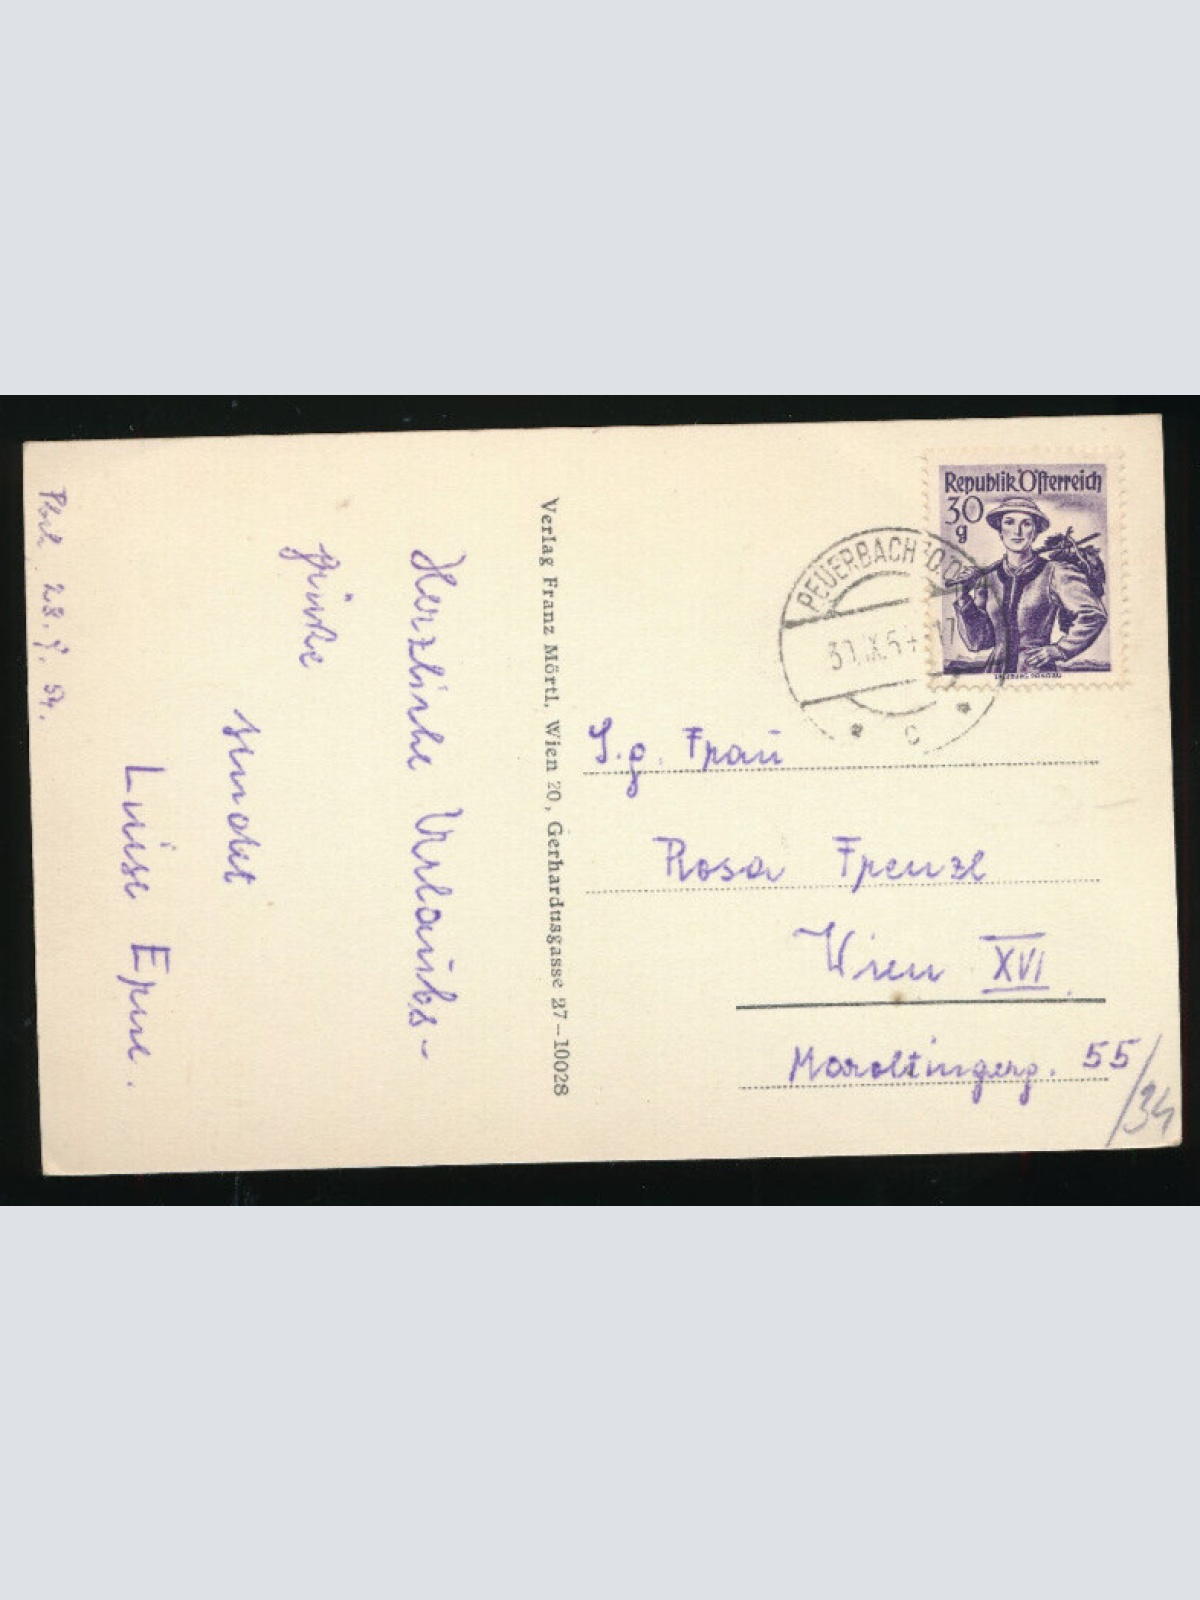 Pbch 28. 9. 54.
Herzliche Urlaubs-
grüße
sendet
Luise
Verlag Franz Mörtl, Wien 20, Gerhardusgasse 27-10028
Republik Österreich
30
g
PEUERBACH
IX. 54
c
S.g. Frau
Rosa Frenzl
Wien XVI
Maroltingerg. 55
/34